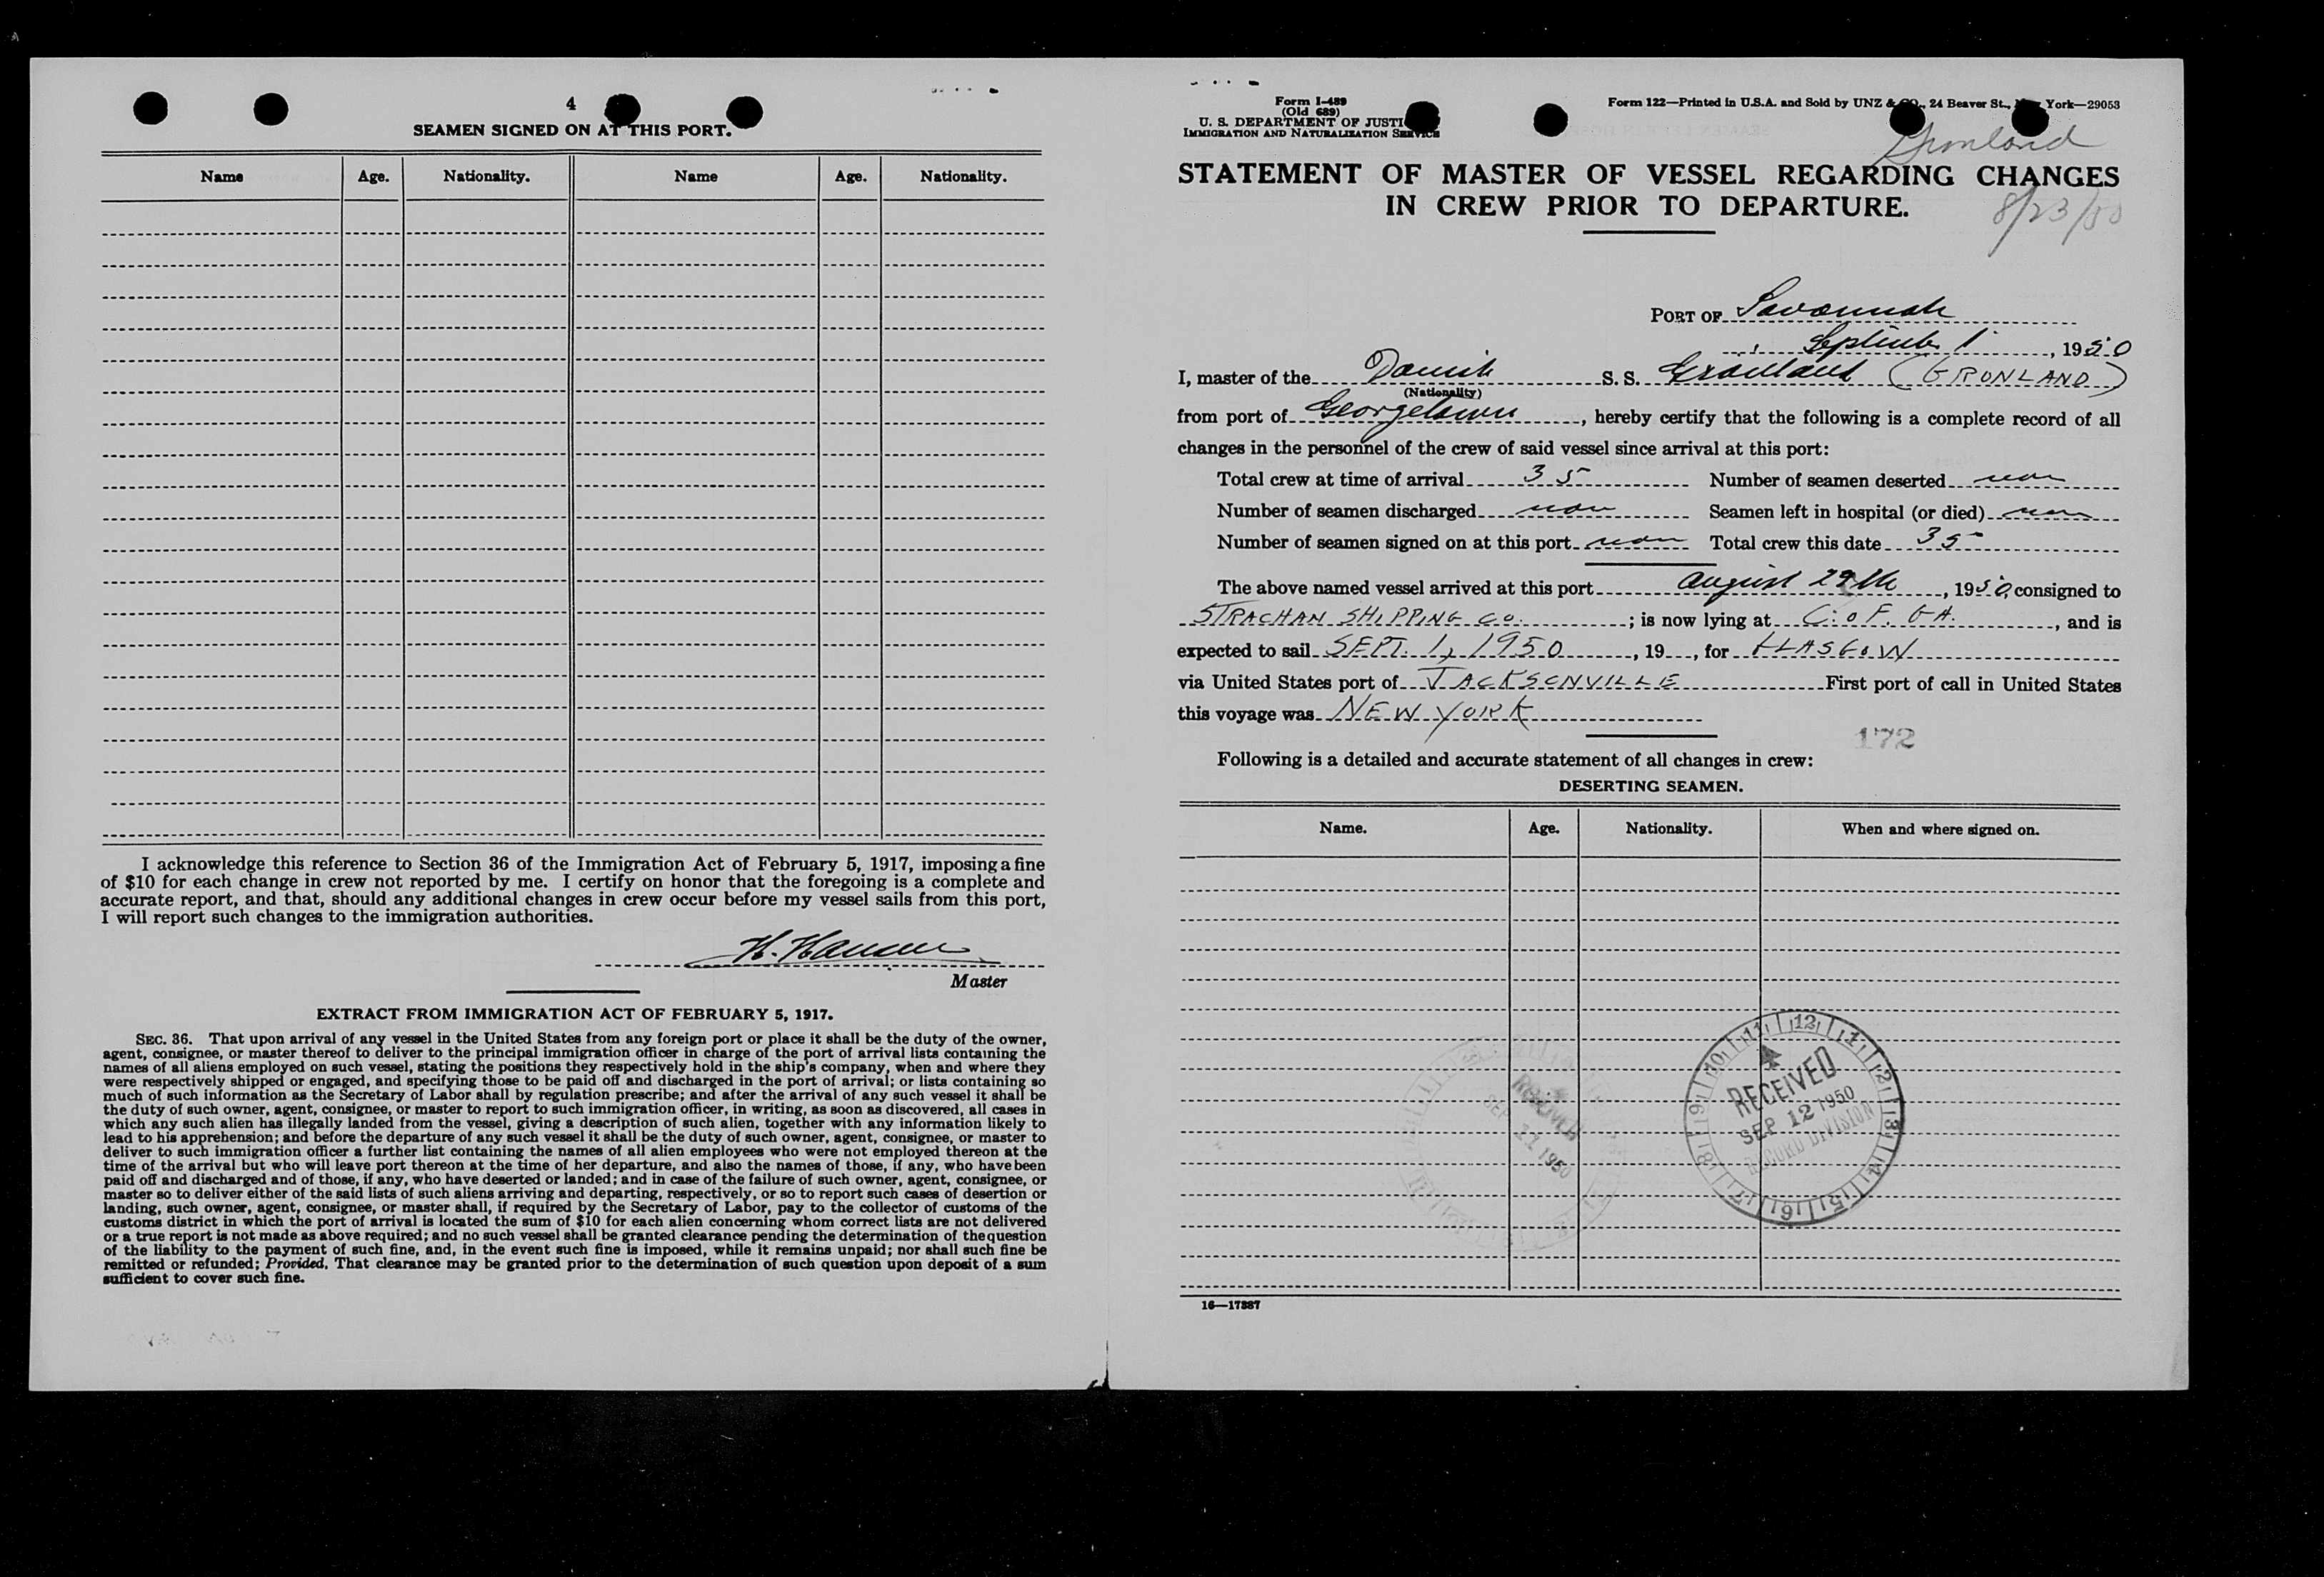 4
SEAMEN SIGNED ON AT THIS PORT.
Name Age. Nationality. Name Age. Nationality.
I acknowledge this reference to Section 36 of the Immigration Act of February 5, 1917, imposing a fine
of $10 for each change in crew not reported by me. I certify on honor that the foregoing is a complete and
accurate report, and that, should any additional changes in crew occur before my vessel sails from this port,
I will report such changes to the immigration authorities.
H. Hansen
Master
EXTRACT FROM IMMIGRATION ACT OF FEBRUARY 5, 1917.
SEC. 36. That upon arrival of any vessel in the United States from any foreign port or place it shall be the duty of the owner,
agent, consignee, or master thereof to deliver to the principal immigration officer in charge of the port of arrival lists containing the
names of all aliens employed on such vessel, stating the positions they respectively hold in the ship's company, when and where they
were respectively shipped or engaged, and specifying those to be paid off and discharged in the port of arrival; or lists containing so
much of such information as the Secretary of Labor shall by regulation prescribe; and after the arrival of any such vessel it shall be
the duty of such owner, agent, consignee, or master to report to such immigration officer, in writing, as soon as discovered, all cases in
which any such alien has illegally landed from the vessel, giving a description of such alien, together with any information likely to
lead to his apprehension; and before the departure of any such vessel it shall be the duty of such owner, agent, consignee, or master to
deliver to such immigration officer a further list containing the names of all alien employees who were not employed thereon at the
time of the arrival but who will leave port thereon at the time of her departure, and also the names of those, if any, who have been
paid off and discharged and of those, if any, who have deserted or landed; and in case of the failure of such owner, agent, consignee, or
master so to deliver either of the said lists of such aliens arriving and departing, respectively, or so to report such cases of desertion or
landing, such owner, agent, consignee, or master shall, if required by the Secretary of Labor, pay to the collector of customs of the
customs district in which the port of arrival is located the sum of $10 for each alien concerning whom correct lists are not delivered
or a true report is not made as above required; and no such vessel shall be granted clearance pending the determination of the question
of the liability to the payment of such fine, and, in the event such fine is imposed, while it remains unpaid; nor shall such fine be
remitted or refunded; Provided, That clearance may be granted prior to the determination of such question upon deposit of a sum
sufficient to cover such fine.
Form I-489
(Old 689)
U. S. DEPARTMENT OF JUSTI
IMMIGRATION AND NATURALIZATION SERVICE
Form 122—Printed in U.S.A. and Sold by UNZ & CO., 24 Beaver St., New York—29053
Gronland
STATEMENT OF MASTER OF VESSEL REGARDING CHANGES
IN CREW PRIOR TO DEPARTURE.
8/23/50
PORT OF Savannah
September 1, 1950
I, master of the Danish S. S. Gronland (GRONLAND)
(Nationality)
from port of Georgetown, hereby certify that the following is a complete record of all
changes in the personnel of the crew of said vessel since arrival at this port:
Total crew at time of arrival 35 Number of seamen deserted non
Number of seamen discharged non Seamen left in hospital (or died) non
Number of seamen signed on at this port non Total crew this date 35
The above named vessel arrived at this port August 29th, 1950, consigned to
STRACHAN SHIPPING CO. ; is now lying at C. OF. GA. , and is
expected to sail SEPT. 1, 1950, 19 , for GLASGOW
via United States port of JACKSONVILLE First port of call in United States
this voyage was NEW YORK
172
Following is a detailed and accurate statement of all changes in crew:
DESERTING SEAMEN.
Name. Age. Nationality. When and where signed on.
12 1 2 3 4 5 6 7 8 9 10 11
RECEIVED
SEP 12 1950
RECORD DIVISION
RECEIVED
SEP 11 1950
16—17387